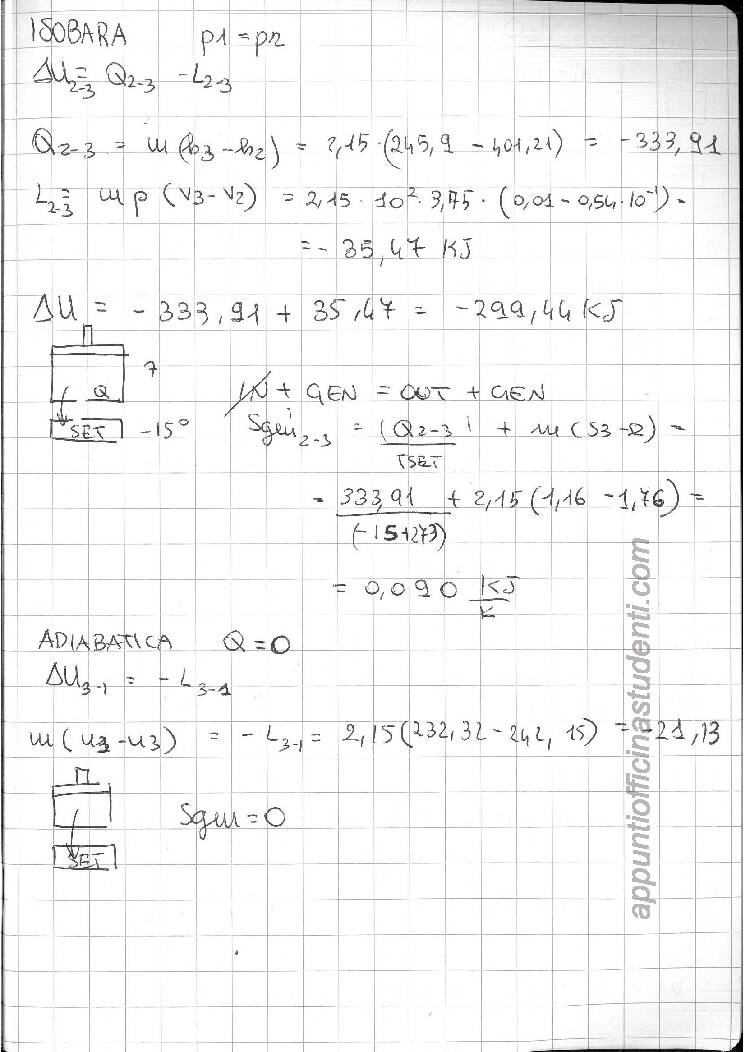 ISOBARA p1=p2
ΔU2-3 = Q2-3 - L2-3
Q2-3 = m (h3-h2) = 2,15·(245,9 - 401,21) = -333,91
L2-3 = m p (V3-V2) = 2,15·10²·3,75·(0,01-0,54·10⁻¹) =
= - 35,47 KJ
ΔU = - 333,91 + 35,47 = -299,44 KJ
7
Q
SET -15°
IN + GEN = OUT + GEN
Sgen2-3 = |Q2-3|/TSET + m (S3-S2) =
= 333,91/(-15+273) + 2,15 (1,16 - 1,76) =
= 0,090 KJ/K
ADIABATICA Q=0
ΔU3-1 = - L3-1
m (u1-u3) = - L3-1 = 2,15(232,32-242,15) = -21,13
Sgen = 0
SET
appuntiofficinastudenti.com